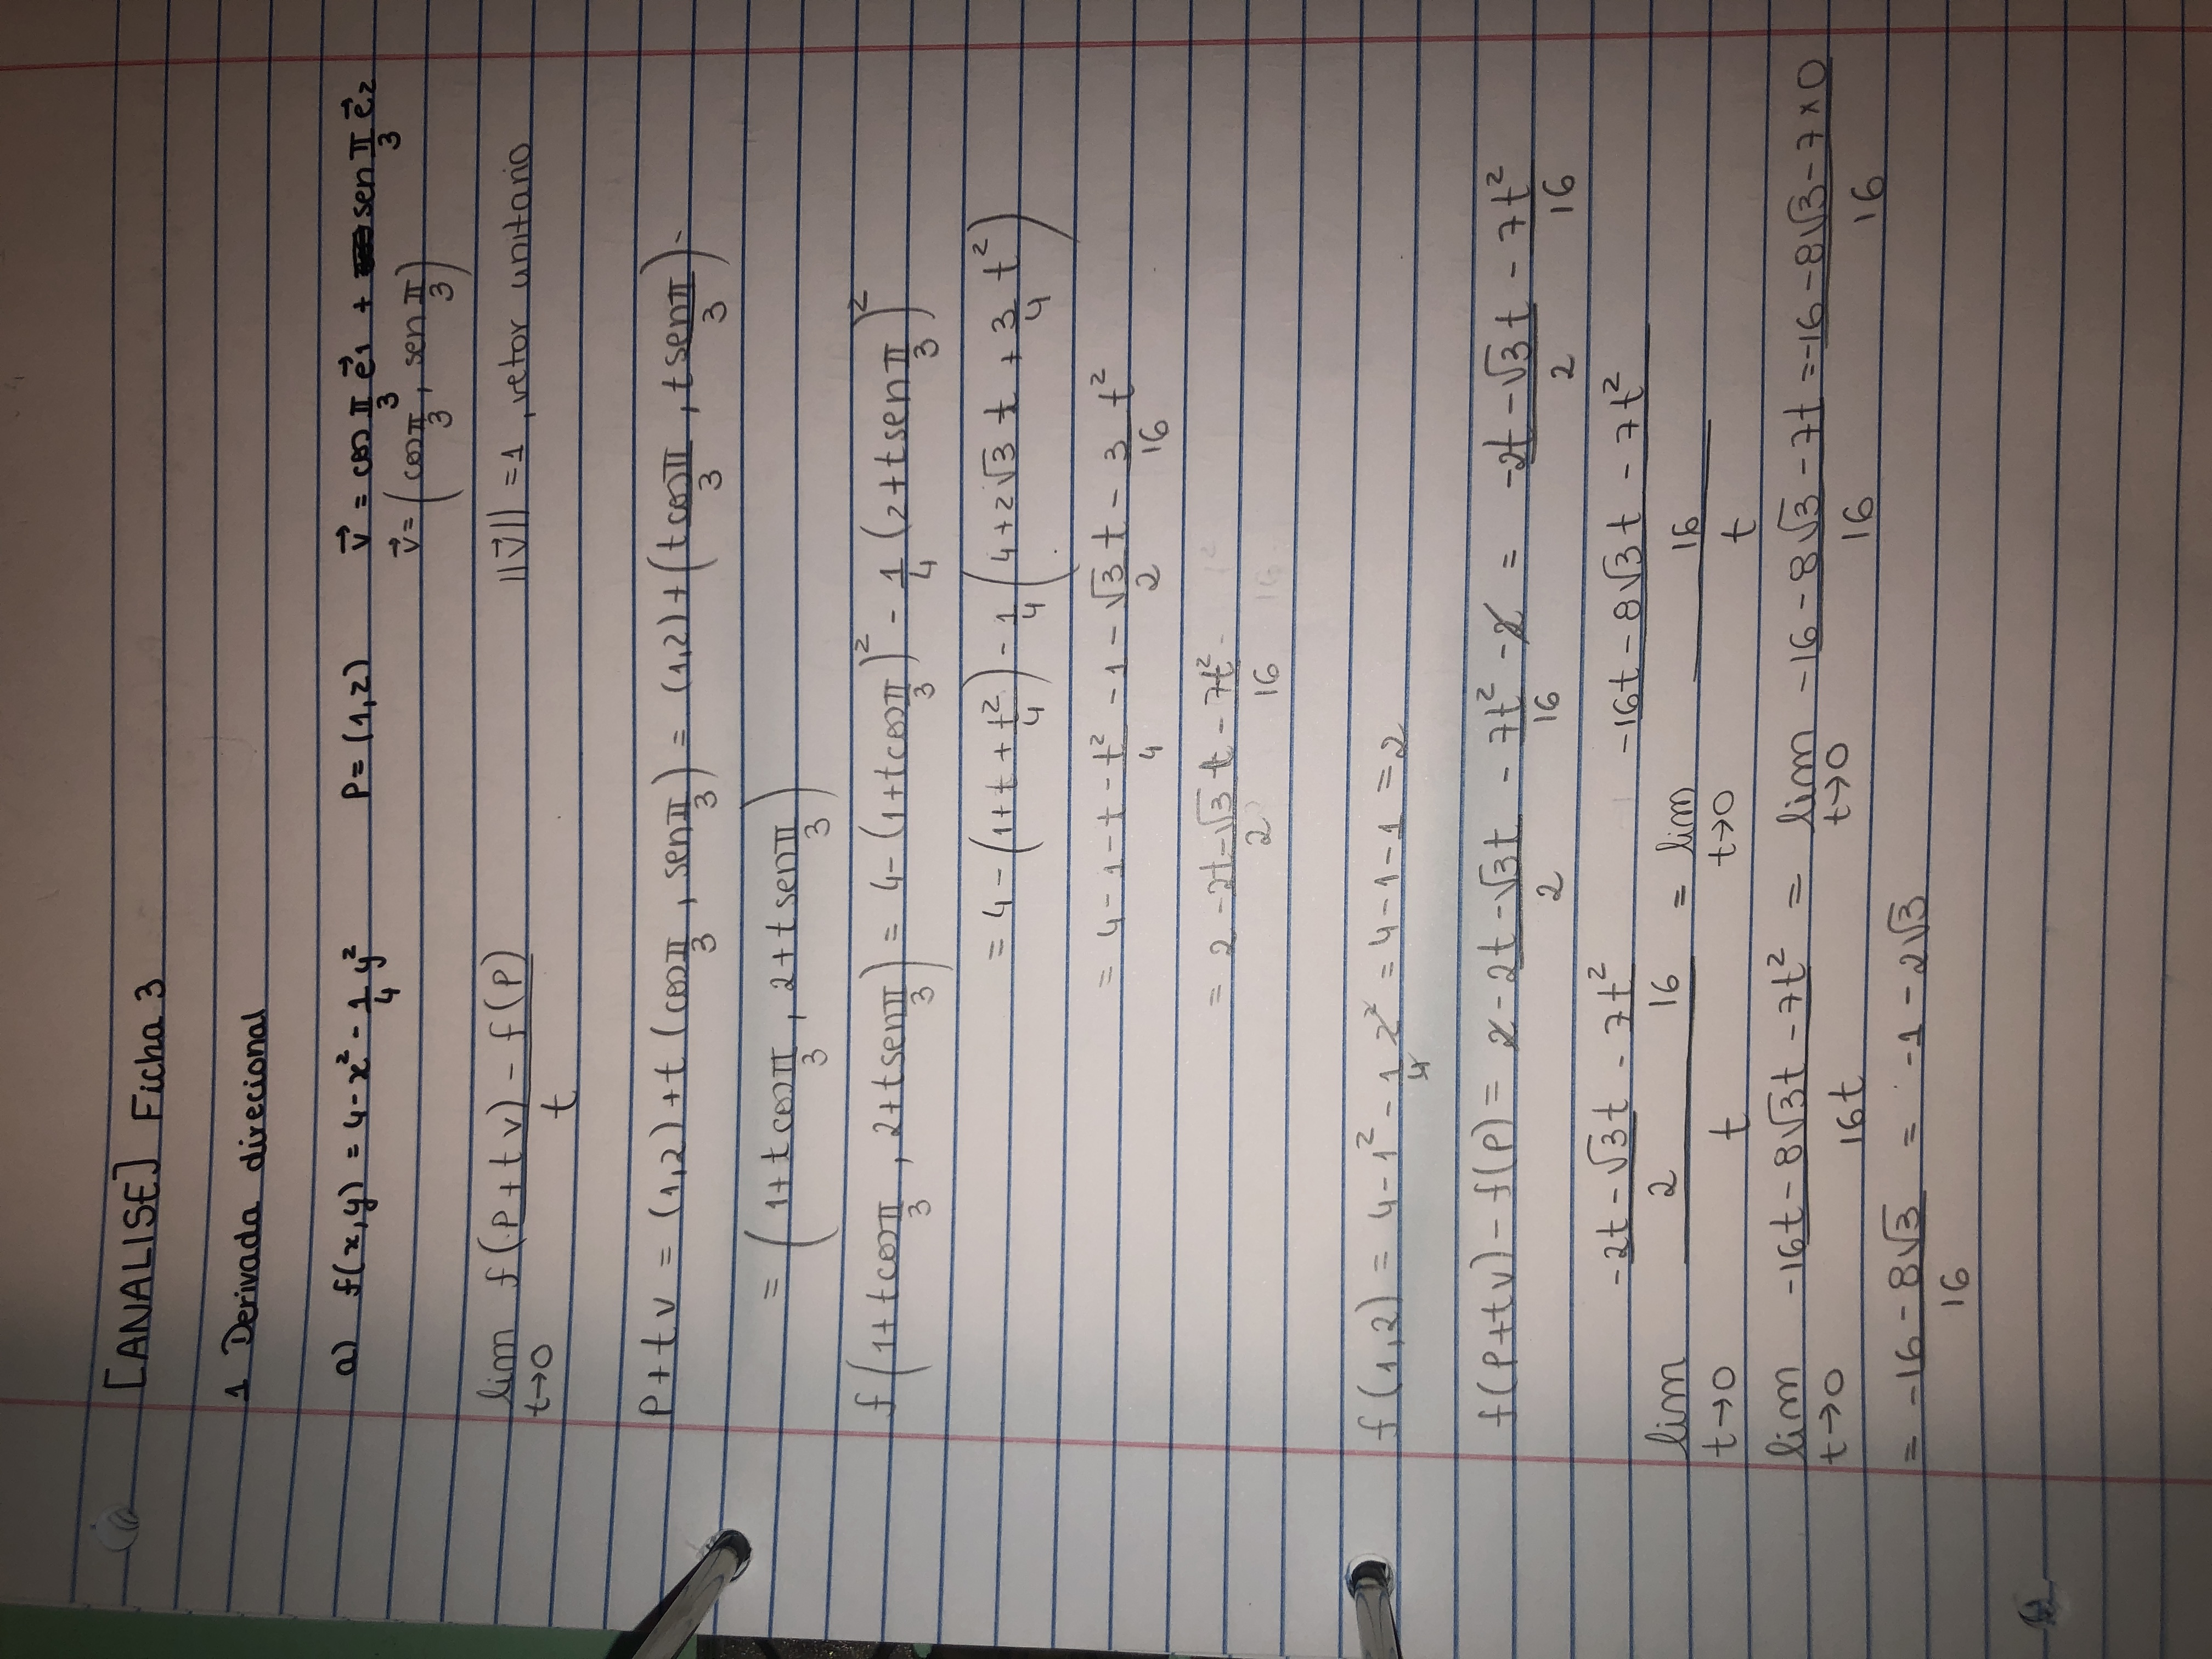 [ANALISE] Ficha 3
1 Derivada direcional
a) f(x,y) = 4 - x² - 1/4 y²    P = (1,2)    v⃗ = cos π/3 e⃗1 + sen π/3 e⃗2
v⃗ = (cos π/3, sen π/3)
lim t→0 (f(P + tv) - f(P))/t    ||v⃗|| = 1, vetor unitario
P + tv = (1,2) + t (cos π/3, sen π/3) = (1,2) + (t cos π/3, t sen π/3) -
= (1 + t cos π/3, 2 + t sen π/3)
f(1 + t cos π/3, 2 + t sen π/3) = 4 - (1 + t cos π/3)² - 1/4 (2 + t sen π/3)²
= 4 - (1 + t + t²/4) - 1/4 (4 + 2√3 t + 3/4 t²)
= 4 - 1 - t - t²/4 - 1 - √3/2 t - 3/16 t²
= 2 (-2t - √3 t)/2 - 7t²/16
f(1,2) = 4 - 1² - 1/4 2² = 4 - 1 - 1 = 2
f(P + tv) - f(P) = 2 (-2t - √3t)/2 - 7t²/16 - 2 = (-2t - √3 t)/2 - 7t²/16
lim t→0 ((-2t - √3t)/2 - 7t²/16)/t = lim t→0 ((-16t - 8√3 t - 7t²)/16)/t
lim t→0 (-16t - 8√3t - 7t²)/16t = lim t→0 (-16 - 8√3 - 7t)/16 = (-16 - 8√3 - 7×0)/16
= (-16 - 8√3)/16 = -1 - 2√3